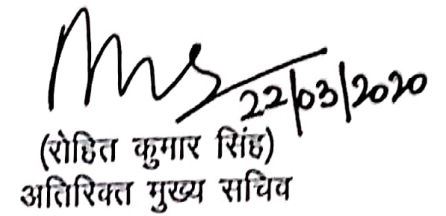 22/03/2020
(रोहित कुमार सिंह)
अतिरिक्त मुख्य सचिव